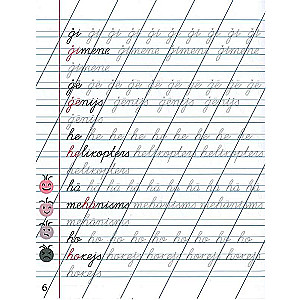 ģi ģi ģi ģi ģi ģi ģi ģi
ģimene ģimene ģimene ģimene
ģimene
ģe ģe ģe ģe ģe ģe ģe ģe
ģēnijs ģēnijs ģēnijs ģēnijs
ģēnijs
he he he he he he he
helikopters helikopters helikopters
helikopters
hā hā hā hā hā hā hā hā
mehānisms mehānisms mehānisms
mehānisms
ho ho ho ho ho ho ho ho
hokejs hokejs hokejs hokejs
hokejs
6